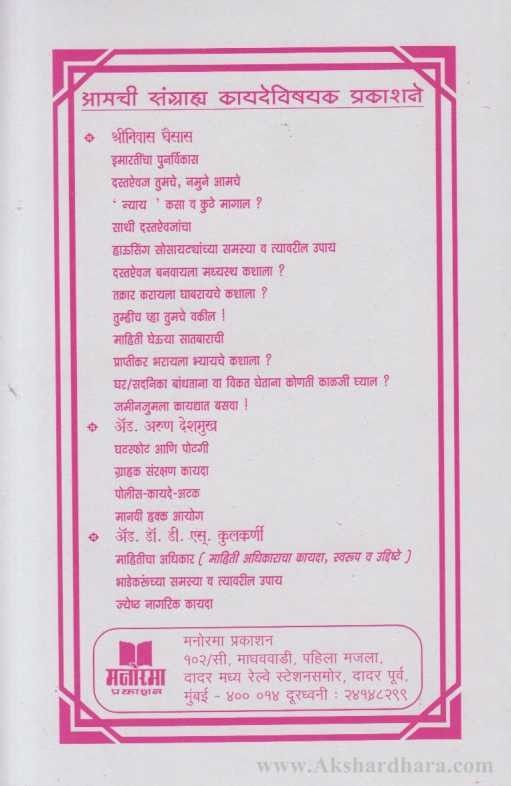 आमची संग्राह्य कायदेविषयक प्रकाशने
श्रीनिवास घैसास
इमारतींचा पुनर्विकास
दस्तऐवज तुमचे, नमुने आमचे
‘ न्याय ’ कसा व कुठे मागाल ?
साथी दस्तऐवजांचा
हाऊसिंग सोसायट्यांच्या समस्या व त्यावरील उपाय
दस्तऐवज बनवायला मध्यस्थ कशाला ?
तक्रार करायला घाबरायचे कशाला ?
तुम्हीच व्हा तुमचे वकील !
माहिती घेऊया सातबाराची
प्राप्तीकर भरायला भ्यायचे कशाला ?
घर/सदनिका बांधताना वा विकत घेताना कोणती काळजी घ्याल ?
जमीनजुमला कायद्यात बसवा !
ॲड. अरुण देशमुख
घटस्फोट आणि पोटगी
ग्राहक संरक्षण कायदा
पोलीस-कायदे-अटक
मानवी हक्क आयोग
ॲड. डॉ. डी. एस्. कुलकर्णी
माहितीचा अधिकार ( माहिती अधिकाराचा कायदा, स्वरूप व उद्दिष्टे )
भाडेकरूंच्या समस्या व त्यावरील उपाय
ज्येष्ठ नागरिक कायदा
मनोरमा
प्रकाशन
मनोरमा प्रकाशन
१०२/सी, माधववाडी, पहिला मजला,
दादर मध्य रेल्वे स्टेशनसमोर, दादर पूर्व,
मुंबई - ४०० ०१४ दूरध्वनी : २४१४८२९९
www.Akshardhara.com